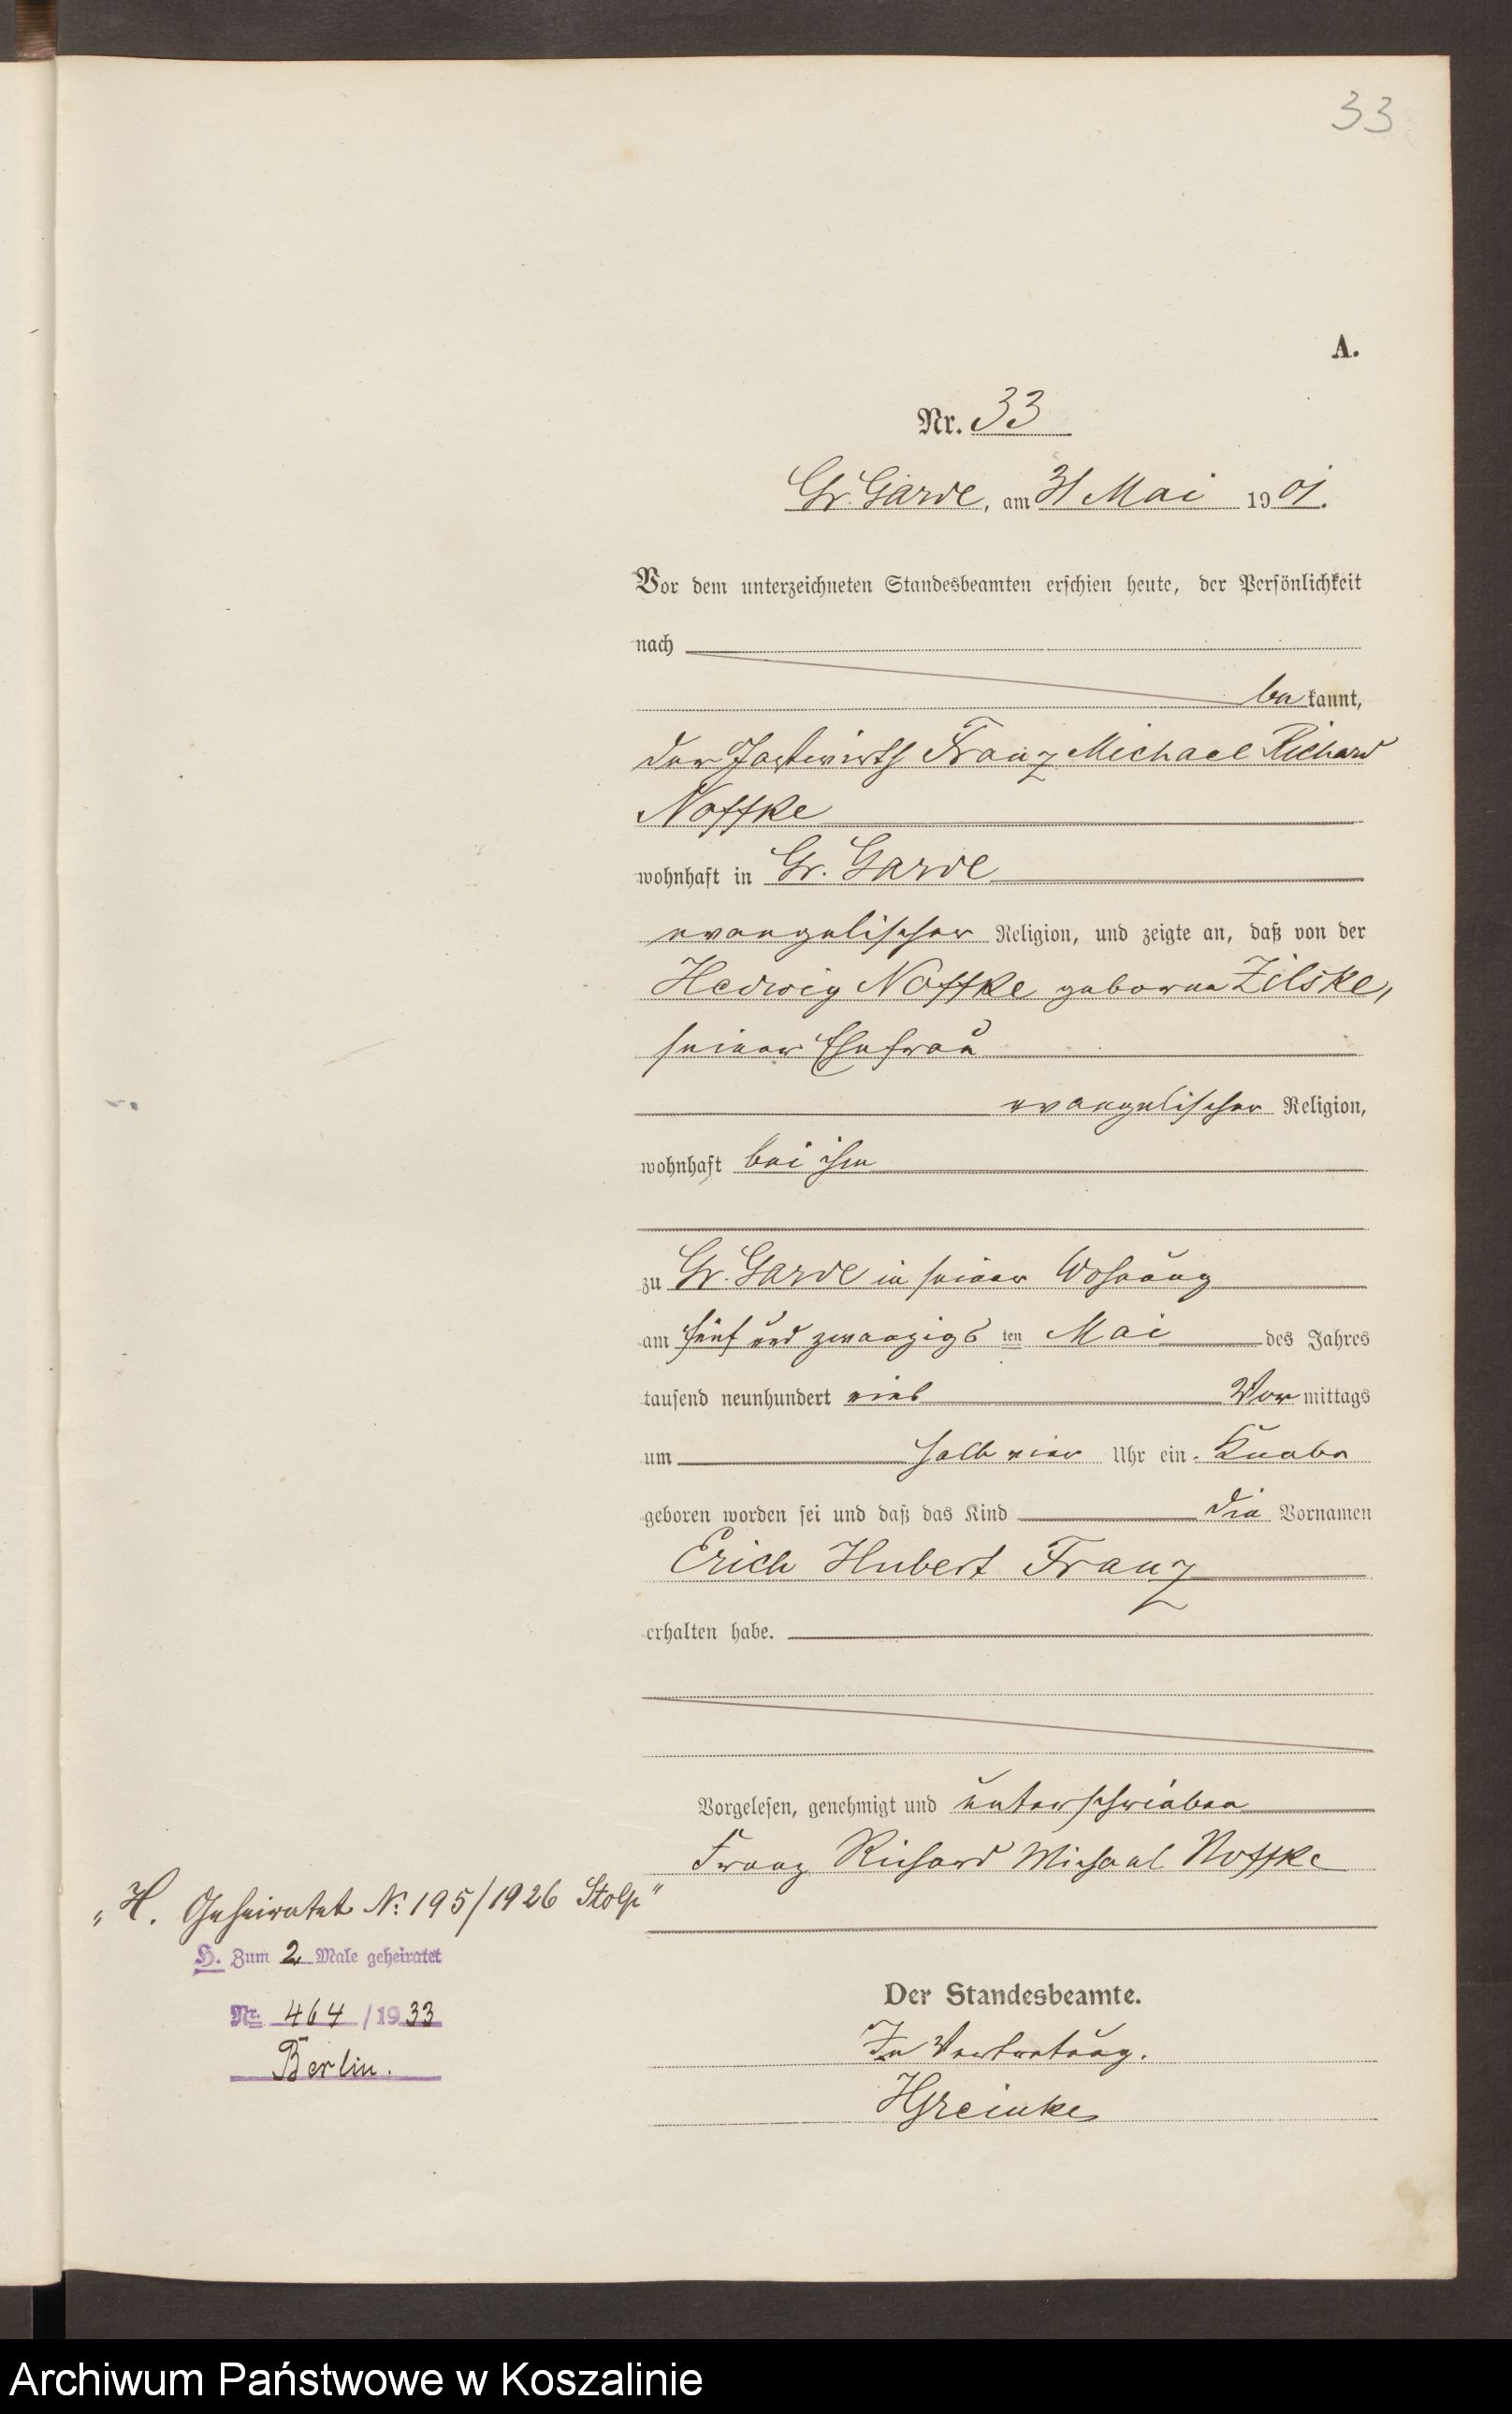 33
A.
Nr. 33
Gr. Garde, am 31 Mai 1901.
Vor dem unterzeichneten Standesbeamten erschien heute, der Persönlichkeit
nach
bekannt,
der Gastwirth Franz Michael Richard
Noffke
wohnhaft in Gr. Garde
evangelischer Religion, und zeigte an, daß von der
Hedwig Noffke geborne Zilske,
seiner Ehefrau
evangelischer Religion,
wohnhaft bei ihm
zu Gr. Garde in seiner Wohnung
am fünf und zwanzigsten Mai des Jahres
tausend neunhundert eins Vormittags
um halb vier Uhr ein Knabe
geboren worden sei und daß das Kind die Vornamen
Erich Hubert Franz
erhalten habe.
Vorgelesen, genehmigt und unterschrieben
Franz Richard Michael Noffke
„H. Geheiratet No: 195/1926 Stolp“
H. Zum 2 Male geheiratet
Nr. 464/1933
Berlin.
Der Standesbeamte.
In Vertretung.
HGreinke
Archiwum Państwowe w Koszalinie